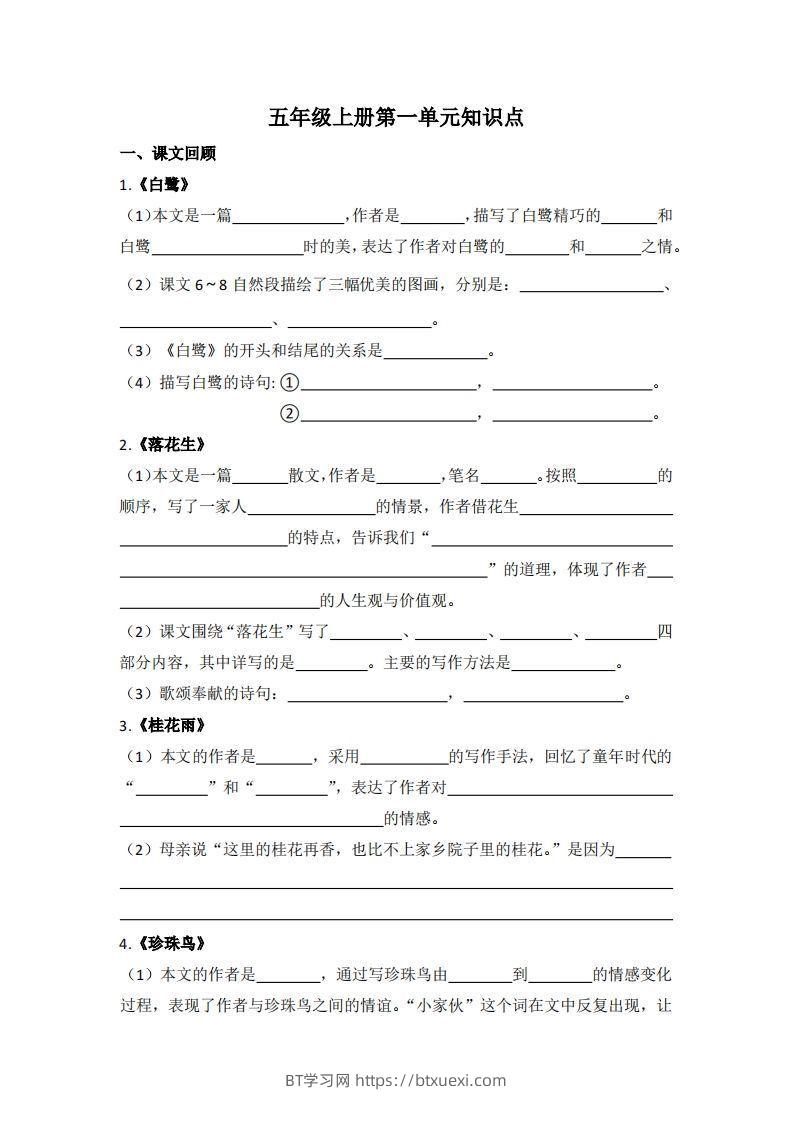 五年级上册第一单元知识点
一、课文回顾
1.《白鹭》
（1）本文是一篇______________，作者是________，描写了白鹭精巧的_______和
白鹭___________________时的美，表达了作者对白鹭的________和_______之情。
（2）课文 6～8 自然段描绘了三幅优美的图画，分别是：__________________、
___________________、__________________。
（3）《白鹭》的开头和结尾的关系是_____________。
（4）描写白鹭的诗句: ①______________________，____________________。
②______________________，____________________。
2.《落花生》
（1）本文是一篇_______散文，作者是________，笔名_______。按照__________的
顺序，写了一家人________________的情景，作者借花生___________________
_____________________的特点，告诉我们“______________________________
______________________________________________”的道理，体现了作者___
_________________________的人生观与价值观。
（2）课文围绕“落花生”写了_________、_________、_________、_________四
部分内容，其中详写的是_________。主要的写作方法是_____________。
（3）歌颂奉献的诗句：____________________，____________________。
3.《桂花雨》
（1）本文的作者是_______，采用___________的写作手法，回忆了童年时代的
“_________”和“_________”，表达了作者对____________________________
_________________________________的情感。
（2）母亲说“这里的桂花再香，也比不上家乡院子里的桂花。”是因为_______
4.《珍珠鸟》
（1）本文的作者是________，通过写珍珠鸟由________到________的情感变化
过程，表现了作者与珍珠鸟之间的情谊。“小家伙”这个词在文中反复出现，让
BT学习网 https://btxuexi.com